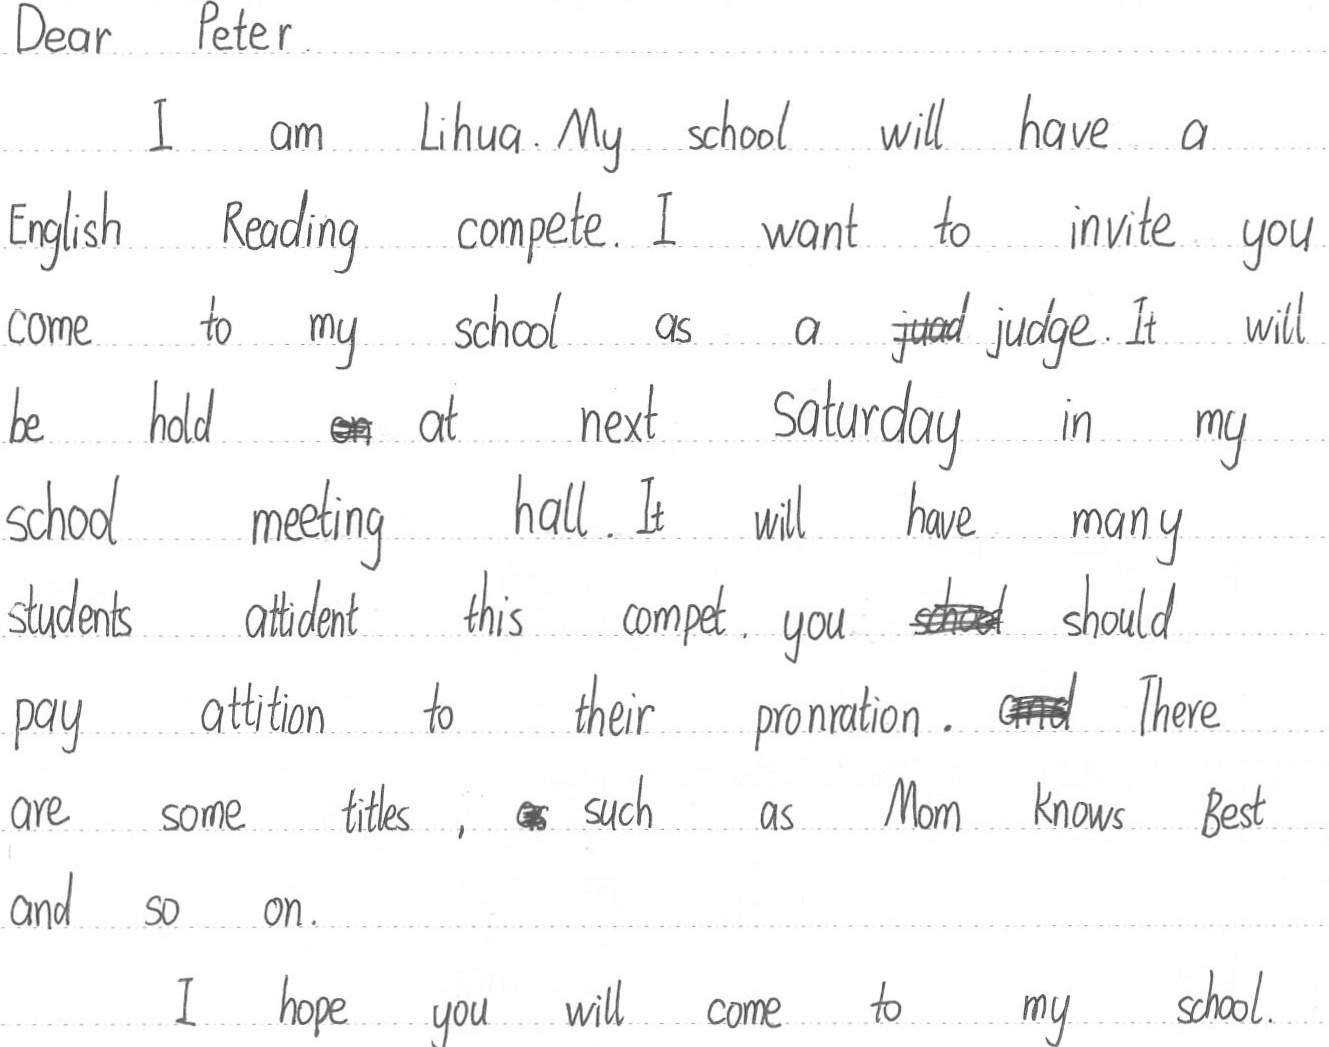 Dear Peter.
I am Lihua. My school will have a
English Reading compete. I want to invite you
come to my school as a judge. It will
be hold at next Saturday in my
school meeting hall. It will have many
students attident this compet. you should
pay attition to their pronration. There
are some titles, such as Mom knows Best
and so on.
I hope you will come to my school.